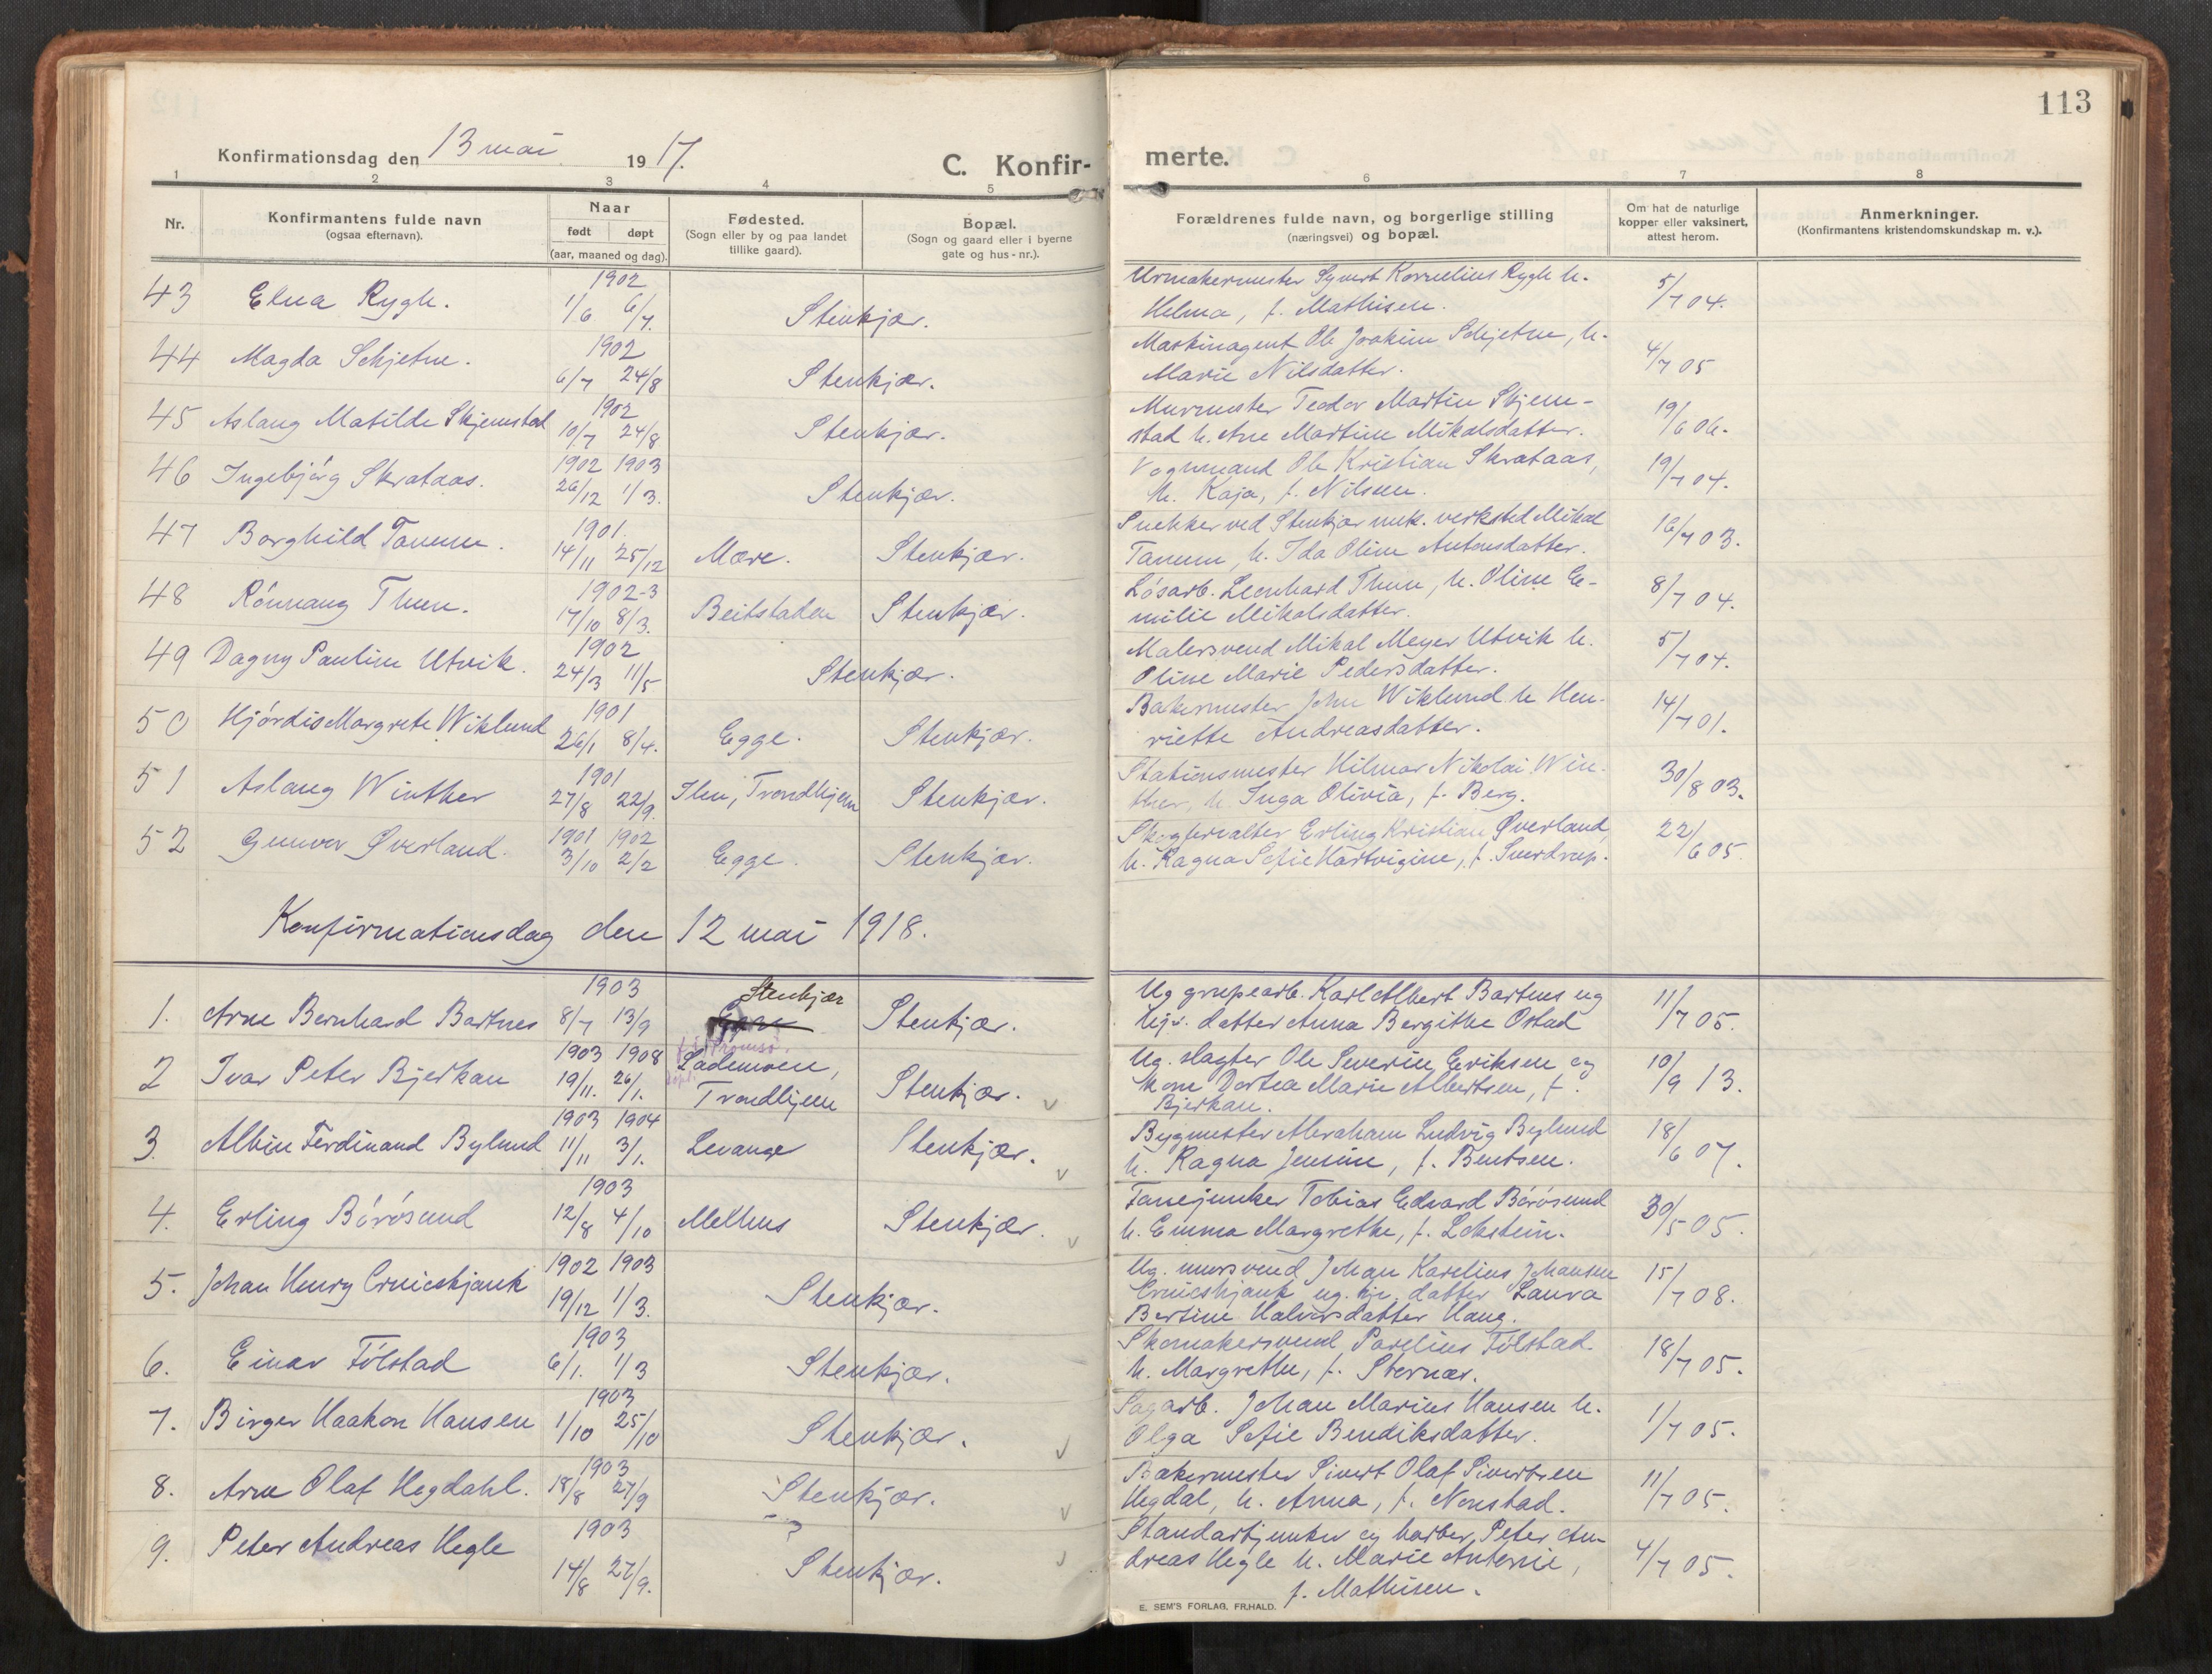 113
Konfirmationsdag den 13 mai 1917.
C. Konfir-
merte.
1 2 3 4 5 6 7 8
Nr.
Konfirmantens fulde navn
(ogsaa efternavn).
Naar
født døpt
(aar, maaned og dag).
Fødested.
(Sogn eller by og paa landet
tillike gaard).
Bopæl.
(Sogn og gaard eller i byerne
gate og hus-nr.).
Forældrenes fulde navn, og borgerlige stilling
(næringsvei) og bopæl.
Om hat de naturlige
kopper eller vaksinert,
attest herom.
Anmerkninger.
(Konfirmantens kristendomskundskap m. v.).
43 Elna Rygh. 1902 1/6 6/7. Stenkjær.
Urmakermester Syvert Kornelius Rygh h.
Helma, f. Mathisen. 5/7 04.
44 Magda Schjetne. 1902 6/7 24/8 Stenkjær.
Maskinagent Ole Joakim Schjetne, h.
Marie Nilsdatter. 4/7 05
45 Aslaug Matilde Skjemstad 1902 10/7 24/8 Stenkjær.
Murmester Teodor Martin Skjem-
stad h. Ane Martine Mikalsdatter. 19/6 06.
46 Ingebjørg Skrataas. 1902 1903 26/12 1/3. Stenkjær.
Vognmand Ole Kristian Skrataas,
h. Kaja, f. Nilsen. 19/7 04.
47 Borghild Tanem. 1901. 14/11 25/12 Mære. Stenkjær.
Snekker ved Stenkjær mek. verksted Mikal
Tanem, h. Ida Oline Antonsdatter. 16/7 03.
48 Rönnaug Thun. 1902-3 17/10 8/3. Beitstaden Stenkjær.
Løsarb. Leonhard Thun, h. Oline E-
milie Mikalsdatter. 8/7 04.
49 Dagny Pauline Utvik. 1902 24/3 11/5 Stenkjær.
Malersvend Mikal Meyer Utvik h.
Oline Marie Pedersdatter. 5/7 04.
50 Hjørdis Margrete Wiklund 1901 26/1 8/4. Egge. Stenkjær.
Bakermester John Wiklund h Hen-
riette Andreasdatter. 14/7 01.
51 Aslaug Winther 1901 27/8 22/9. Ilen, Trondhjem Stenkjær.
Stationsmester Hilmar Nikolai Win-
ther, h. Inga Olivia, f. Berg. 30/8 03.
52 Gunvor Øverland. 1901 1902 3/10 2/2 Egge. Stenkjær.
Skogforvalter Erling Kristian Øverland,
h. Ragna Sofie Hartvigine, f. Sverdrup. 22/6 05.
Konfirmationsdag den 12 mai 1918.
1. Arne Bernhard Bartnes 1903 8/7 13/9 Stenkjær Stenkjær.
Ug grupearb. Karl Albert Bartnes og
hgr. datter Anna Bergithe Ostad 11/7 05.
2 Ivar Peter Bjerkan 1903 1908 19/11. 26/1. Tromsø. Lademoen, Trondhjem Stenkjær.
Ug. slagter Ole Severin Eriksen og
kone Dortea Marie Albertsen, f.
Bjerkan. 10/9 13.
3. Albin Ferdinand Bylund 1903 1904 11/11 3/1. Levanger Stenkjær.
Bygmester Abraham Ludvig Bylund
h. Ragna Jensine, f. Bentsen. 18/6 07.
4. Erling Börösund 1903 12/8 4/10 Melhus Stenkjær.
Fanejunker Tobias Edvard Börösund
h. Emma Margrethe, f. Lokstein. 30/5 05.
5. Johan Henry Cruicskjank 1902 1903 19/12 1/3. Stenkjær.
Ug. mursvend Johan Karelius Johansen
Cruicshjank ug. hjr. datter Laura
Bertine Halvorsdatter Haug. 15/7 08.
6. Einar Fölstad 1903 6/1. 1/3 Stenkjær.
Skomakersvend Parelius Fölstad
h. Margrethe, f. Sternær. 18/7 05.
7. Birger Haakon Hansen 1903 1/10 25/10 Stenkjær.
Sagarb. Johan Marius Hansen h.
Olga Sofie Bendiksdatter. 1/7 05.
8. Arne Olaf Hegdahl. 1903 18/8 27/9 Stenkjær.
Bakermester Sivert Olaf Sivertsen
Hegdal, h. Anna, f. Nonstad. 11/7 05.
9. Peter Andreas Hegle 1903 14/8 27/9. Stenkjær.
Standartjunker og barber, Peter An-
dreas Hegle h. Marie Antonie,
f. Mathisen. 4/7 05.
E. SEM'S FORLAG, FR.HALD.